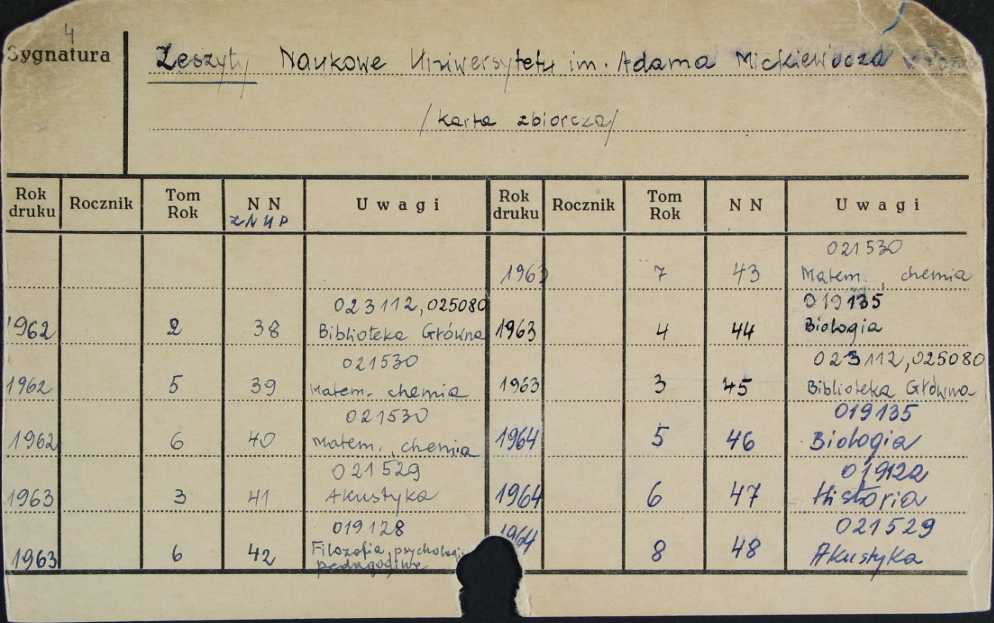 4
Sygnatura
Zeszyty Naukowe Uniwersytetu im. Adama Mickiewicza
/karta zbiorcza/
Rok druku Rocznik Tom Rok N N ZNUP Uwagi Rok druku Rocznik Tom Rok N N Uwagi
021530
1963 7 43 Matem., chemia
023112, 025080 019135
1962 2 38 Biblioteka Główna 1963 4 44 Biologia
021530 023112, 025080
1962 5 39 Matem. chemia 1963 3 45 Biblioteka Główna
021530 019135
1962 6 40 Matem., chemia 1964 5 46 Biologia
021529 019122
1963 3 41 Akustyka 1964 6 47 Historia
019128 021529
1963 6 42 Filozofia, psychologia, 1964 8 48 Akustyka